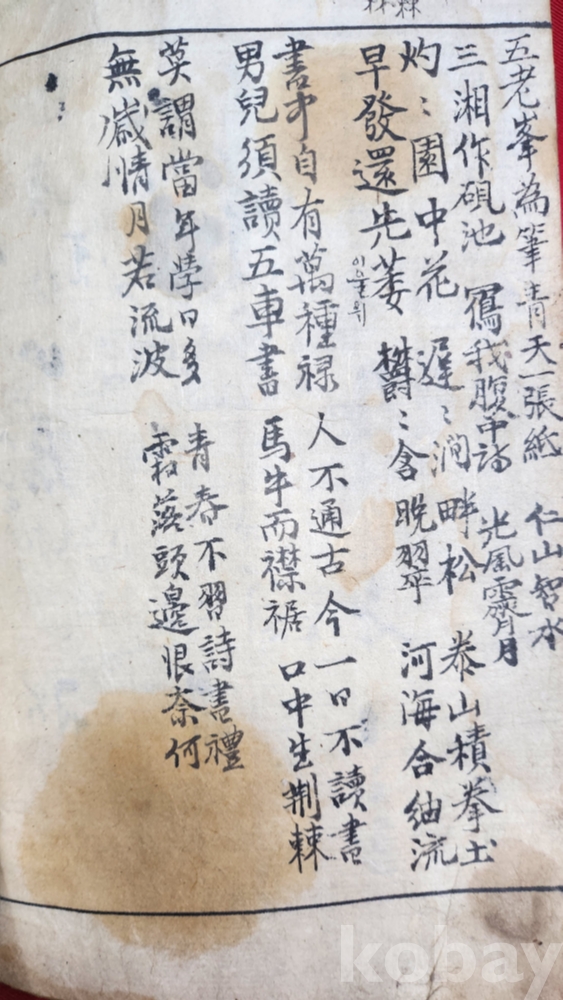 五老峯為筆青天一張紙 仁山智水
三湘作硯池 寫我腹中詩 光風霽月
灼〻園中花 遲〻澗畔松 泰山積拳土
早發還先萎 欝〻含晩翠 河海合紬流
書中自有萬種禄 人不通古今 一日不讀書
男兒須讀五車書 馬牛而襟裾 口中生荊棘
莫謂當年學日多 青春不習詩書禮
無歲情月若流波 霜落頭邊恨奈何
kobay